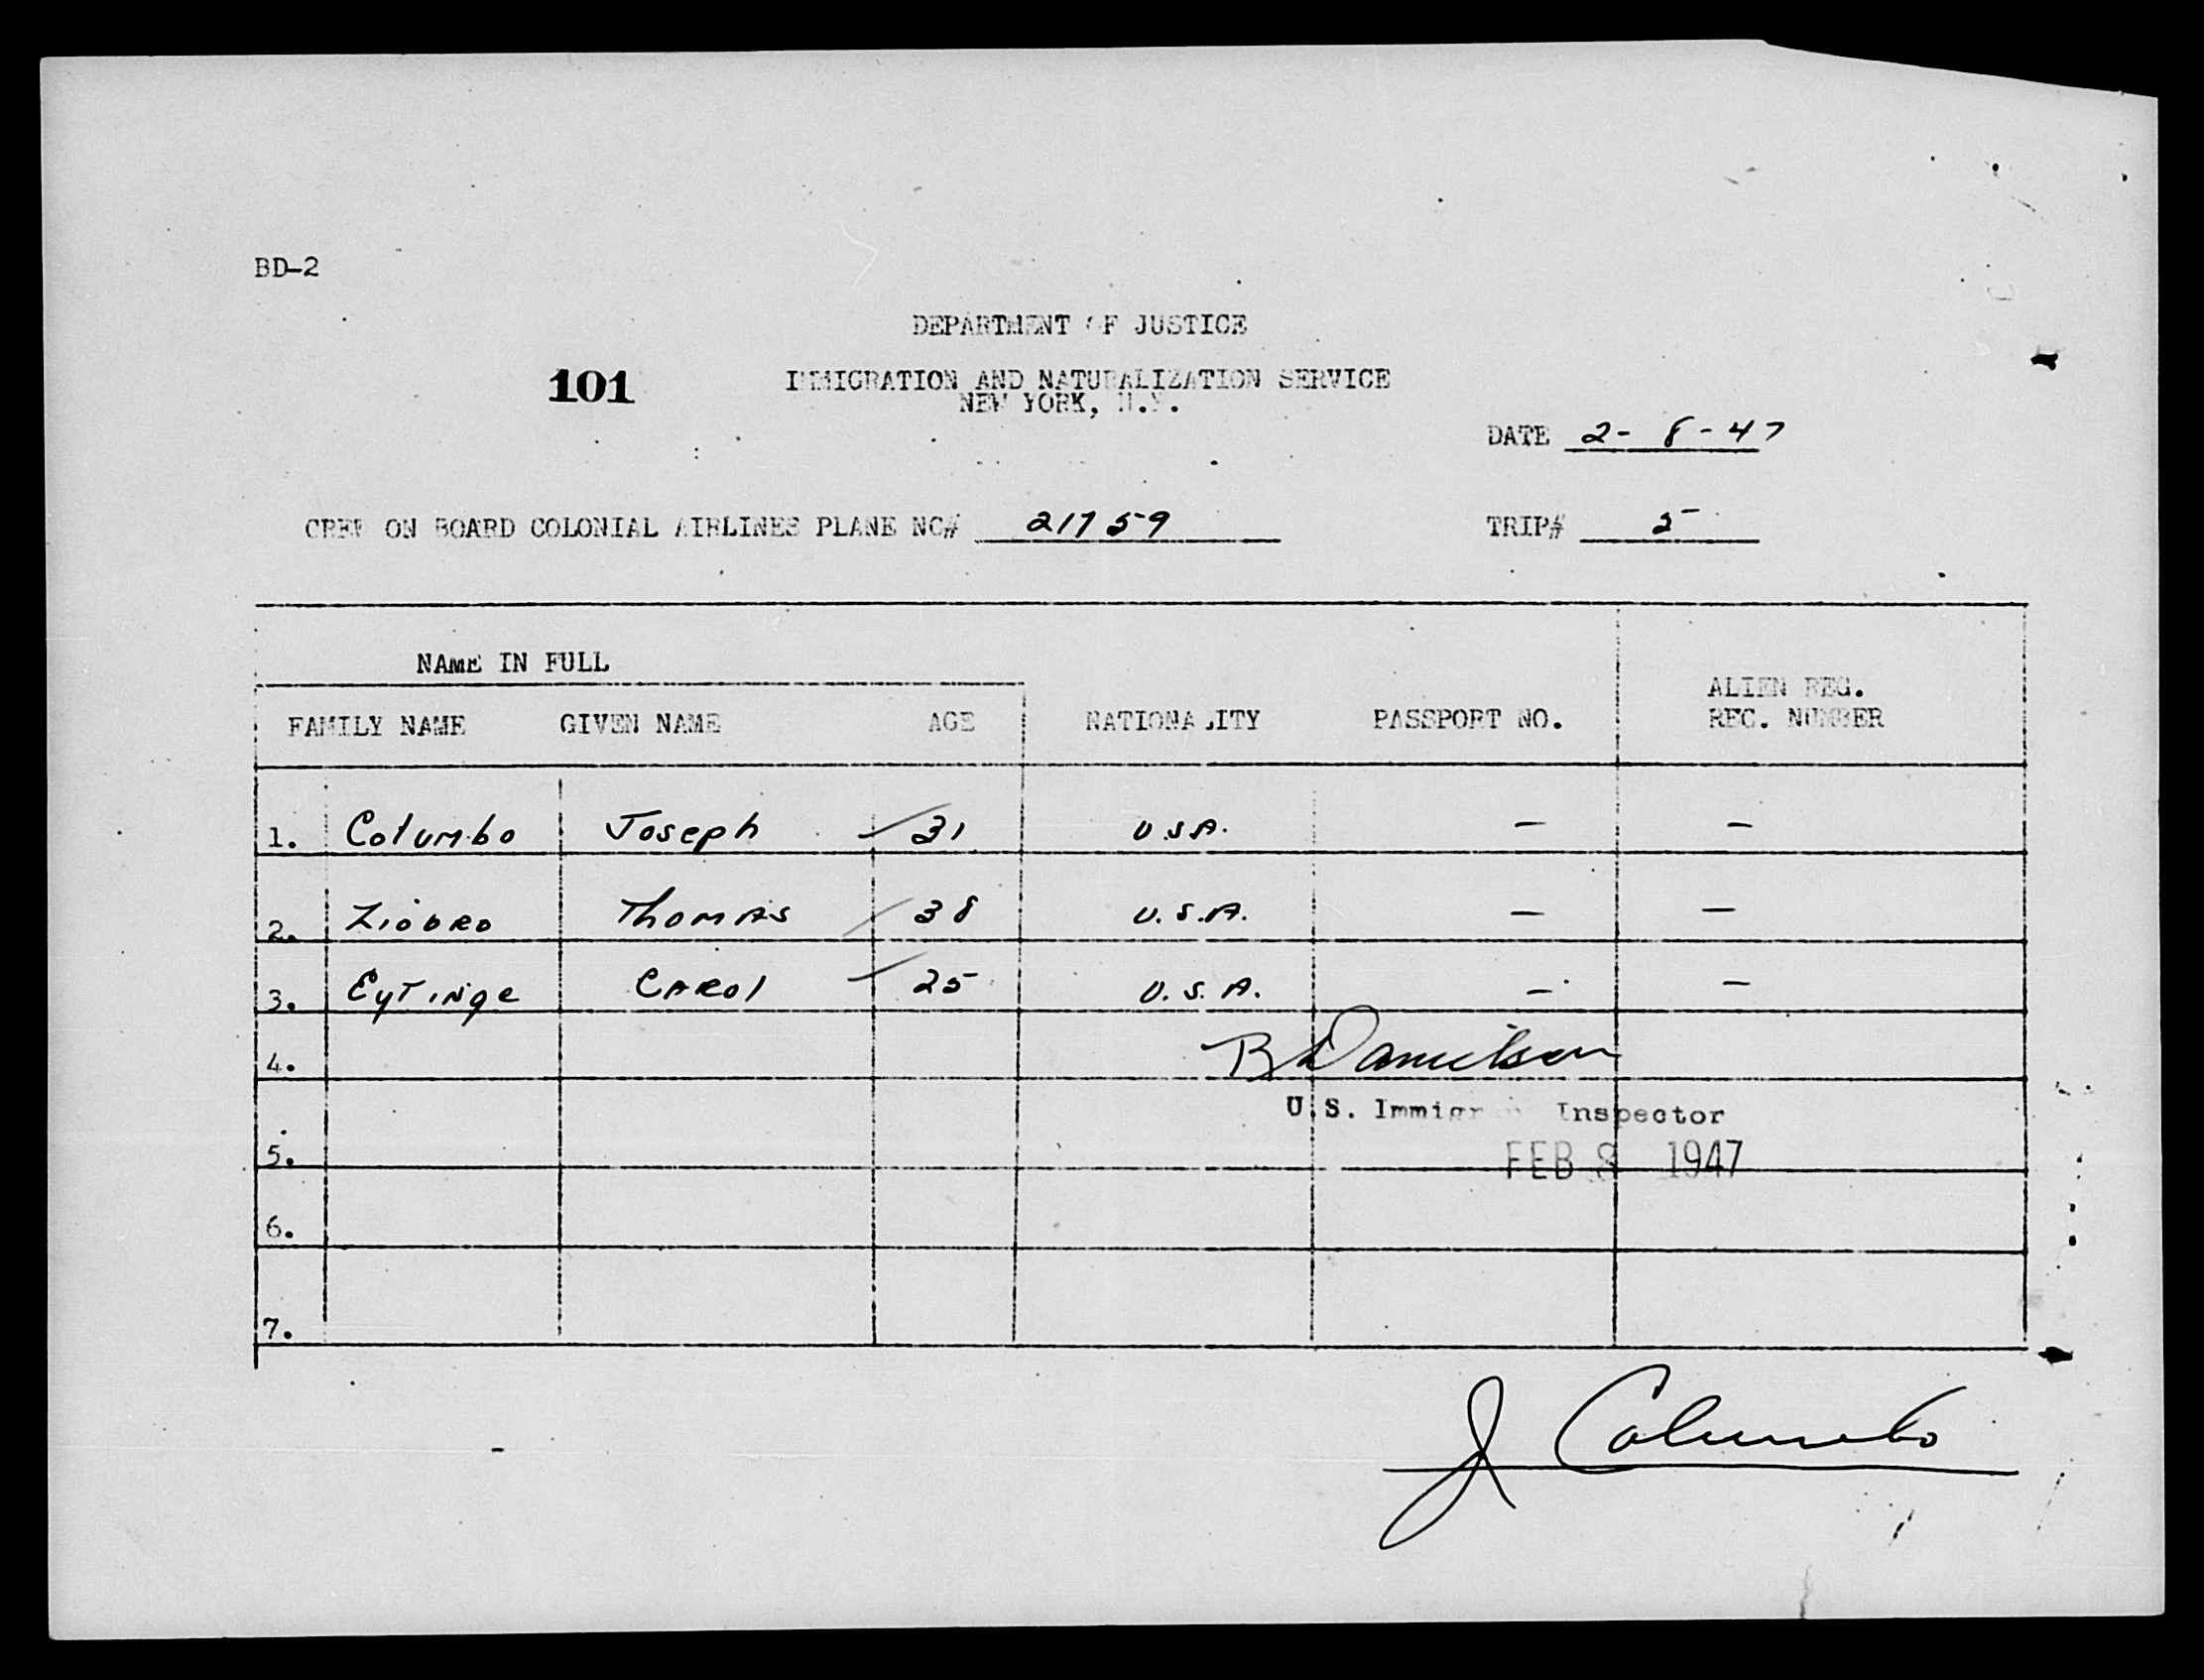 BD-2
DEPARTMENT OF JUSTICE
101
IMMIGRATION AND NATURALIZATION SERVICE
NEW YORK, N.Y.
DATE 2-8-47
CREW ON BOARD COLONIAL AIRLINES PLANE NC# 21759 TRIP# 5
NAME IN FULL
FAMILY NAME GIVEN NAME AGE NATIONALITY PASSPORT NO. ALIEN REG. REC. NUMBER
1. Columbo Joseph 31 U.S.A. — —
2. Ziobro Thomas 38 U.S.A. — —
3. Eytinge Carol 25 U.S.A. — —
4. Danielson
U.S. Immigr Inspector
5. FEB 8 1947
6.
7.
J Columbo